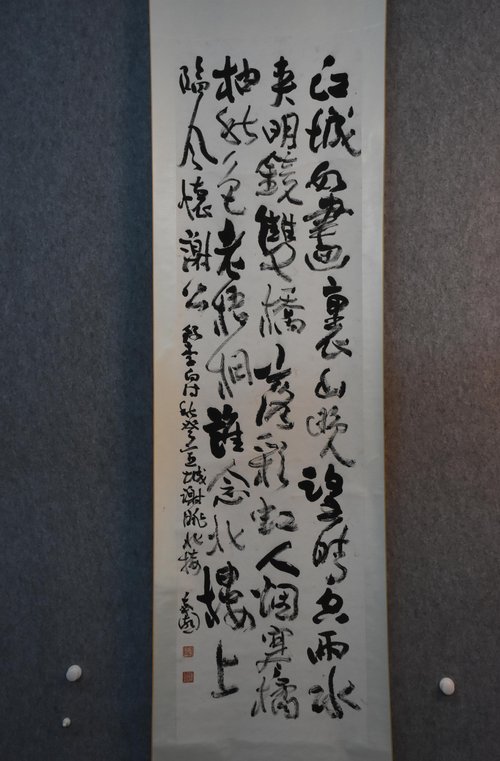 江城如畫裏山晚望晴空兩水
夾明鏡雙橋落彩虹人烟寒橘
柚秋色老梧桐誰念北樓上
臨風懷謝公
李白诗秋登宣城謝朓北樓